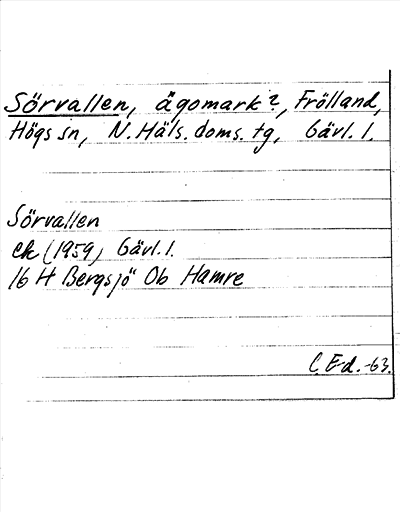 Sörvallen, ägomark?, Frölland,
Högs sn, N. Häls. doms. tg, Gävl. l.
Sörvallen
ek (1959) Gävl. l.
16 H Bergsjö Ob Hamre
C. E-d. -63.